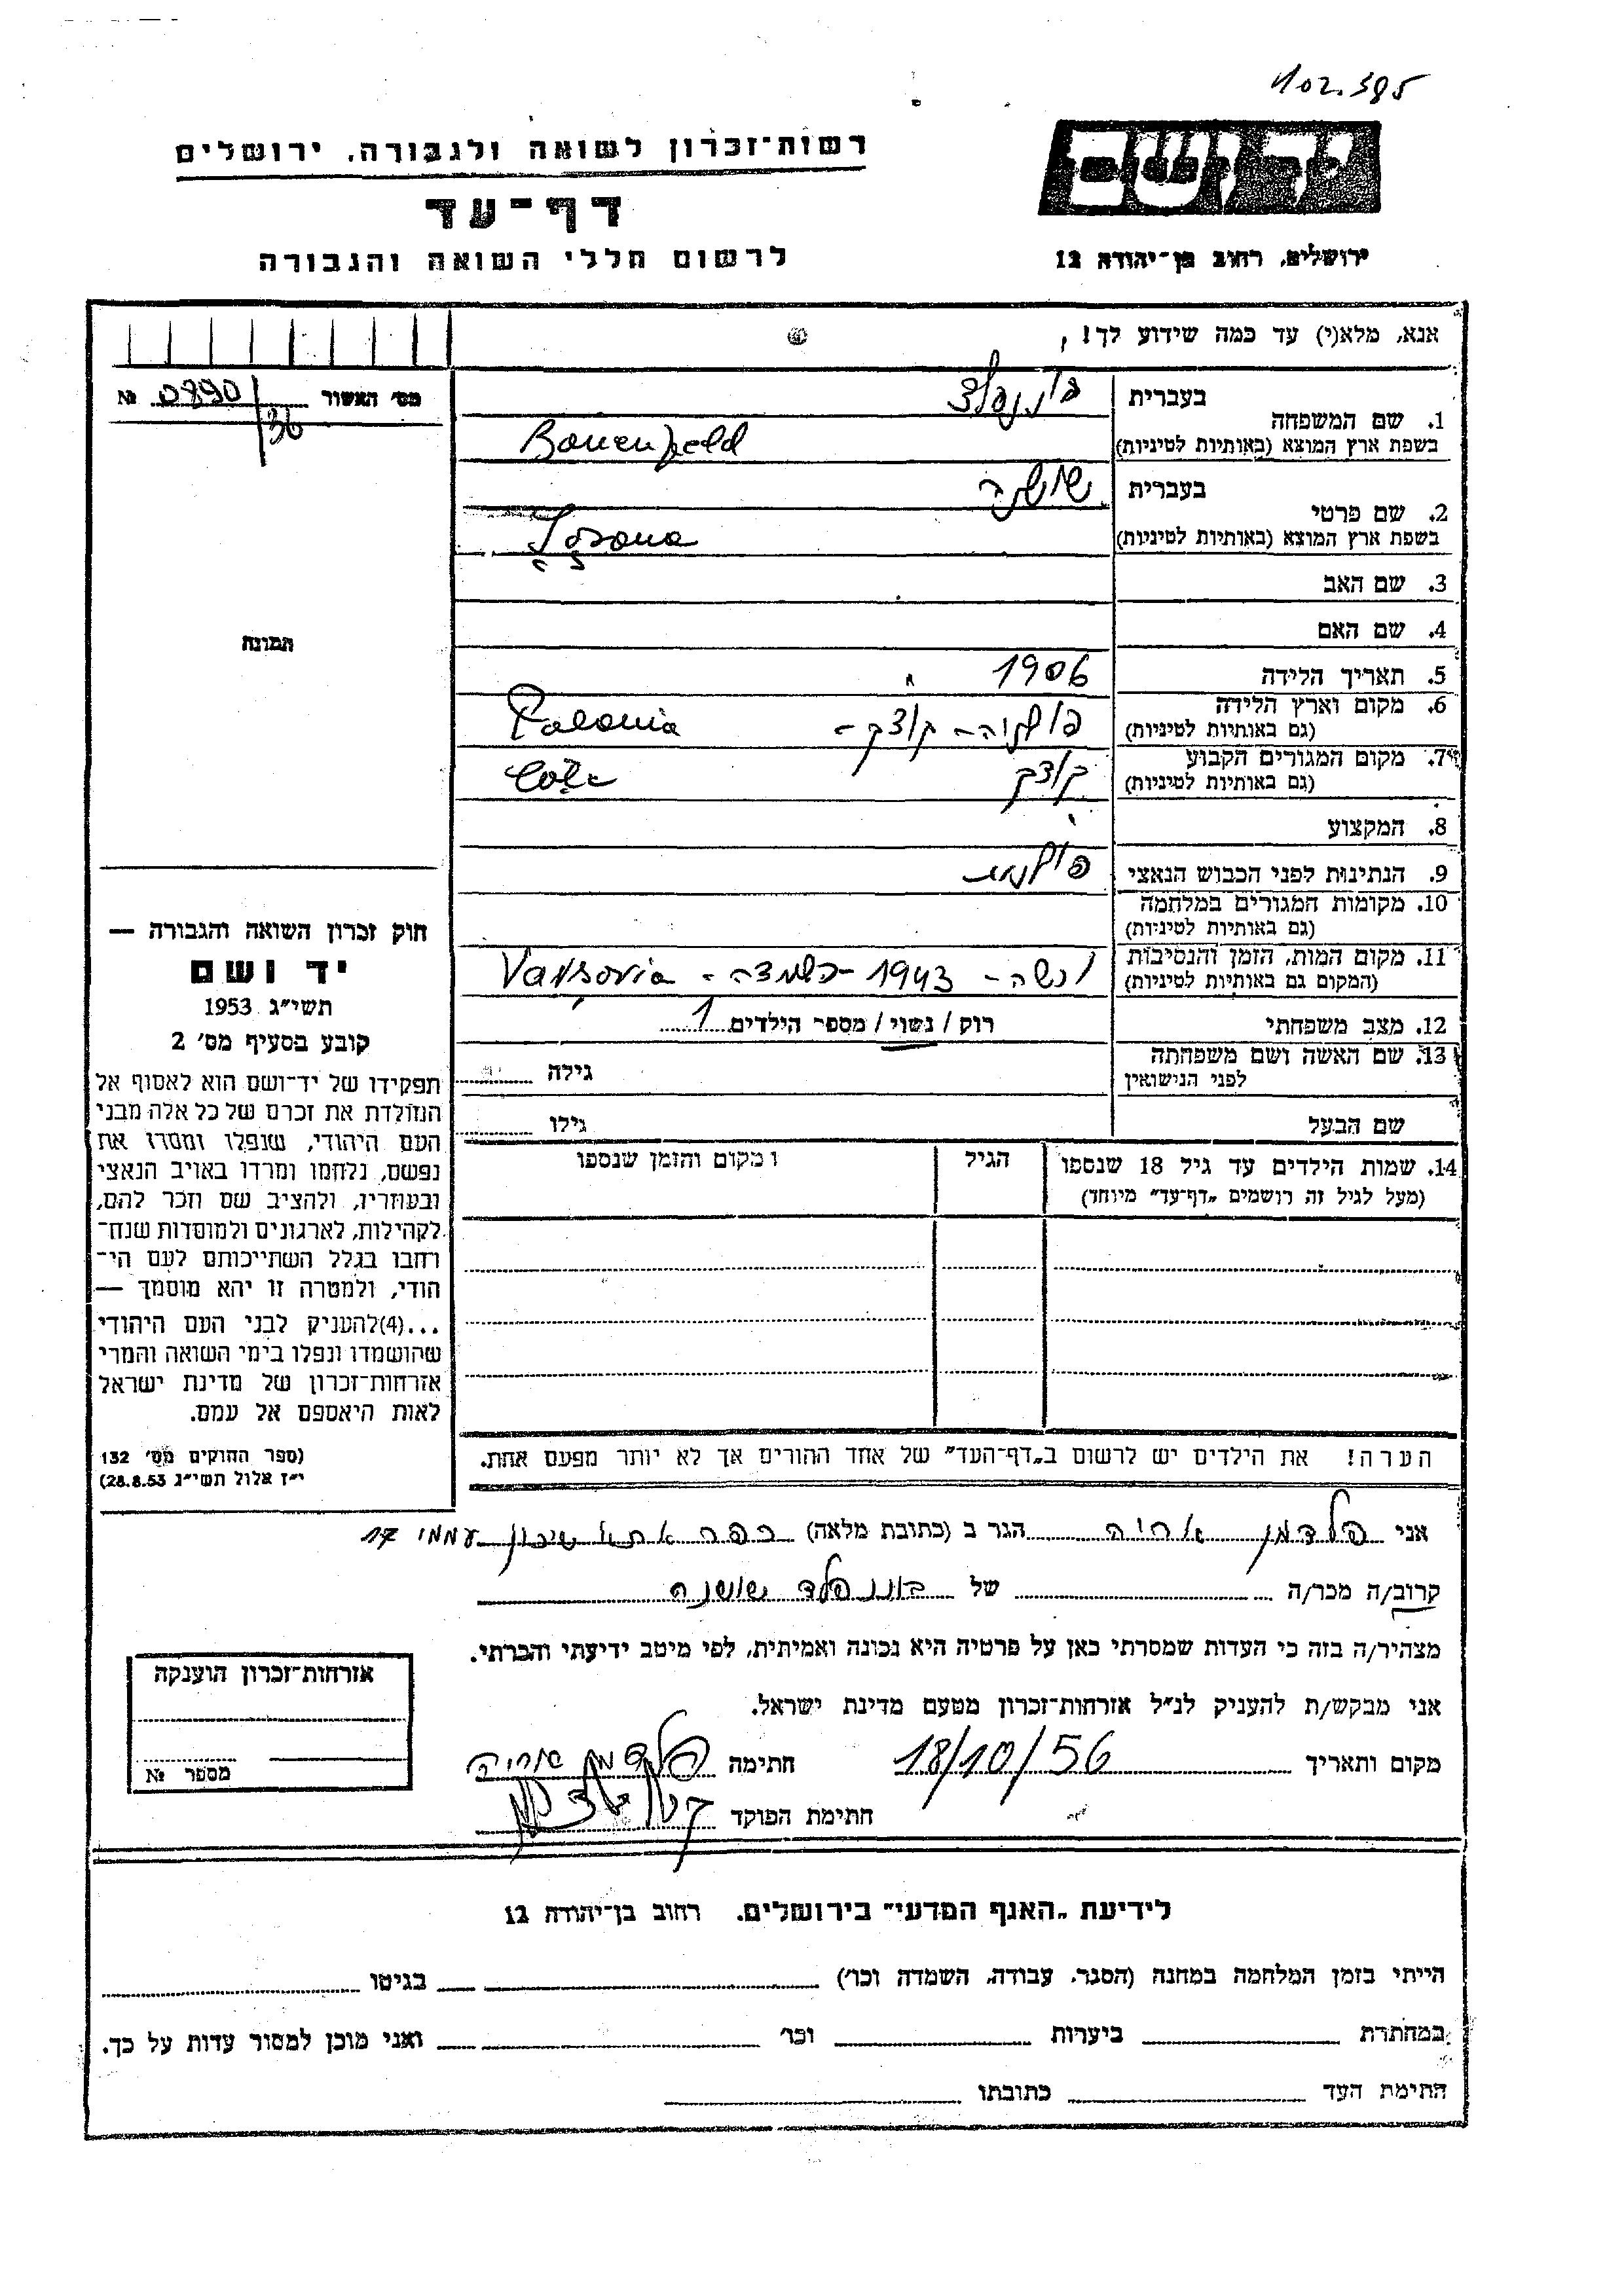 102.385
רשות־זכרון לשואה ולגבורה, ירושלים
יד ושם
דף־עד
לרשום חללי השואה והגבורה
ירושלים, רחוב בן־יהודה 12
אנא, מלא(י) עד כמה שידוע לך!
מס׳ האשור 0890 №
36
1. שם המשפחה
בעברית
בשפת ארץ המוצא (באותיות לטיניות) Bonenfeld
2. שם פרטי
בעברית שושנה
בשפת ארץ המוצא (באותיות לטיניות)
3. שם האב
4. שם האם
תמונה
5. תאריך הלידה 1906
6. מקום וארץ הלידה פולניה - קוצק - Polonia
(גם באותיות לטיניות)
7. מקום המגורים הקבוע קוצק
(גם באותיות לטיניות)
8. המקצוע
9. הנתינות לפני הכבוש הנאצי פולנית
10. מקומות המגורים במלחמה
(גם באותיות לטיניות)
11. מקום המות, הזמן והנסיבות ורשה - 1943 - השמדה - Varsovia
(המקום גם באותיות לטיניות)
12. מצב משפחתי רווק / נשוי / מספר הילדים 1
13. שם האשה ושם משפחתה גילה
לפני הנישואין
שם הבעל גילו
14. שמות הילדים עד גיל 18 שנספו הגיל ומקום והזמן שנספו
(מעל לגיל זה רושמים „דף־עד״ מיוחד)
חוק זכרון השואה והגבורה —
יד ושם
תשי״ג 1953
קובע בסעיף מס׳ 2
תפקידו של יד־ושם הוא לאסוף אל
המולדת את זכרם של כל אלה מבני
העם היהודי, שנפלו ומסרו את
נפשם, נלחמו ומרדו באויב הנאצי
ובעוזריו, ולהציב שם וזכר להם,
לקהילות, לארגונים ולמוסדות שנח־
רחבו בגלל השתייכותם לעם הי־
הודי, ולמטרה זו יהא מוסמך —
...(4)להעניק לבני העם היהודי
שהושמדו ונפלו בימי השואה והמרי
אזרחות־זכרון של מדינת ישראל
לאות היאספם אל עמם.
(ספר החוקים מס׳ 132
י״ז אלול תשי״ג 28.8.53)
הערה! את הילדים יש לרשום ב„דף־העד״ של אחד ההורים אך לא יותר מפעם אחת.
אני פלדמן אריה הגר ב (כתובת מלאה) כפר אתא שיכון עממי 17
קרוב/ה מכר/ה של בוננפלד שושנה
מצהיר/ה בזה כי העדות שמסרתי כאן על פרטיה היא נכונה ואמיתית, לפי מיטב ידיעתי והכרתי.
אני מבקש/ת להעניק לנ״ל אזרחות־זכרון מטעם מדינת ישראל.
מקום ותאריך 18/10/56 חתימה פלדמן אריה
חתימת הפוקד
אזרחות־זכרון הוענקה
מספר №
לידיעת „האגף המדעי״ בירושלים, רחוב בן־יהודה 12
הייתי בזמן המלחמה במחנה (הסגר, עבודה, השמדה וכו׳) בגיטו
במחתרת ביערות וכו׳ ואני מוכן למסור עדות על כך.
חתימת העד כתובתו